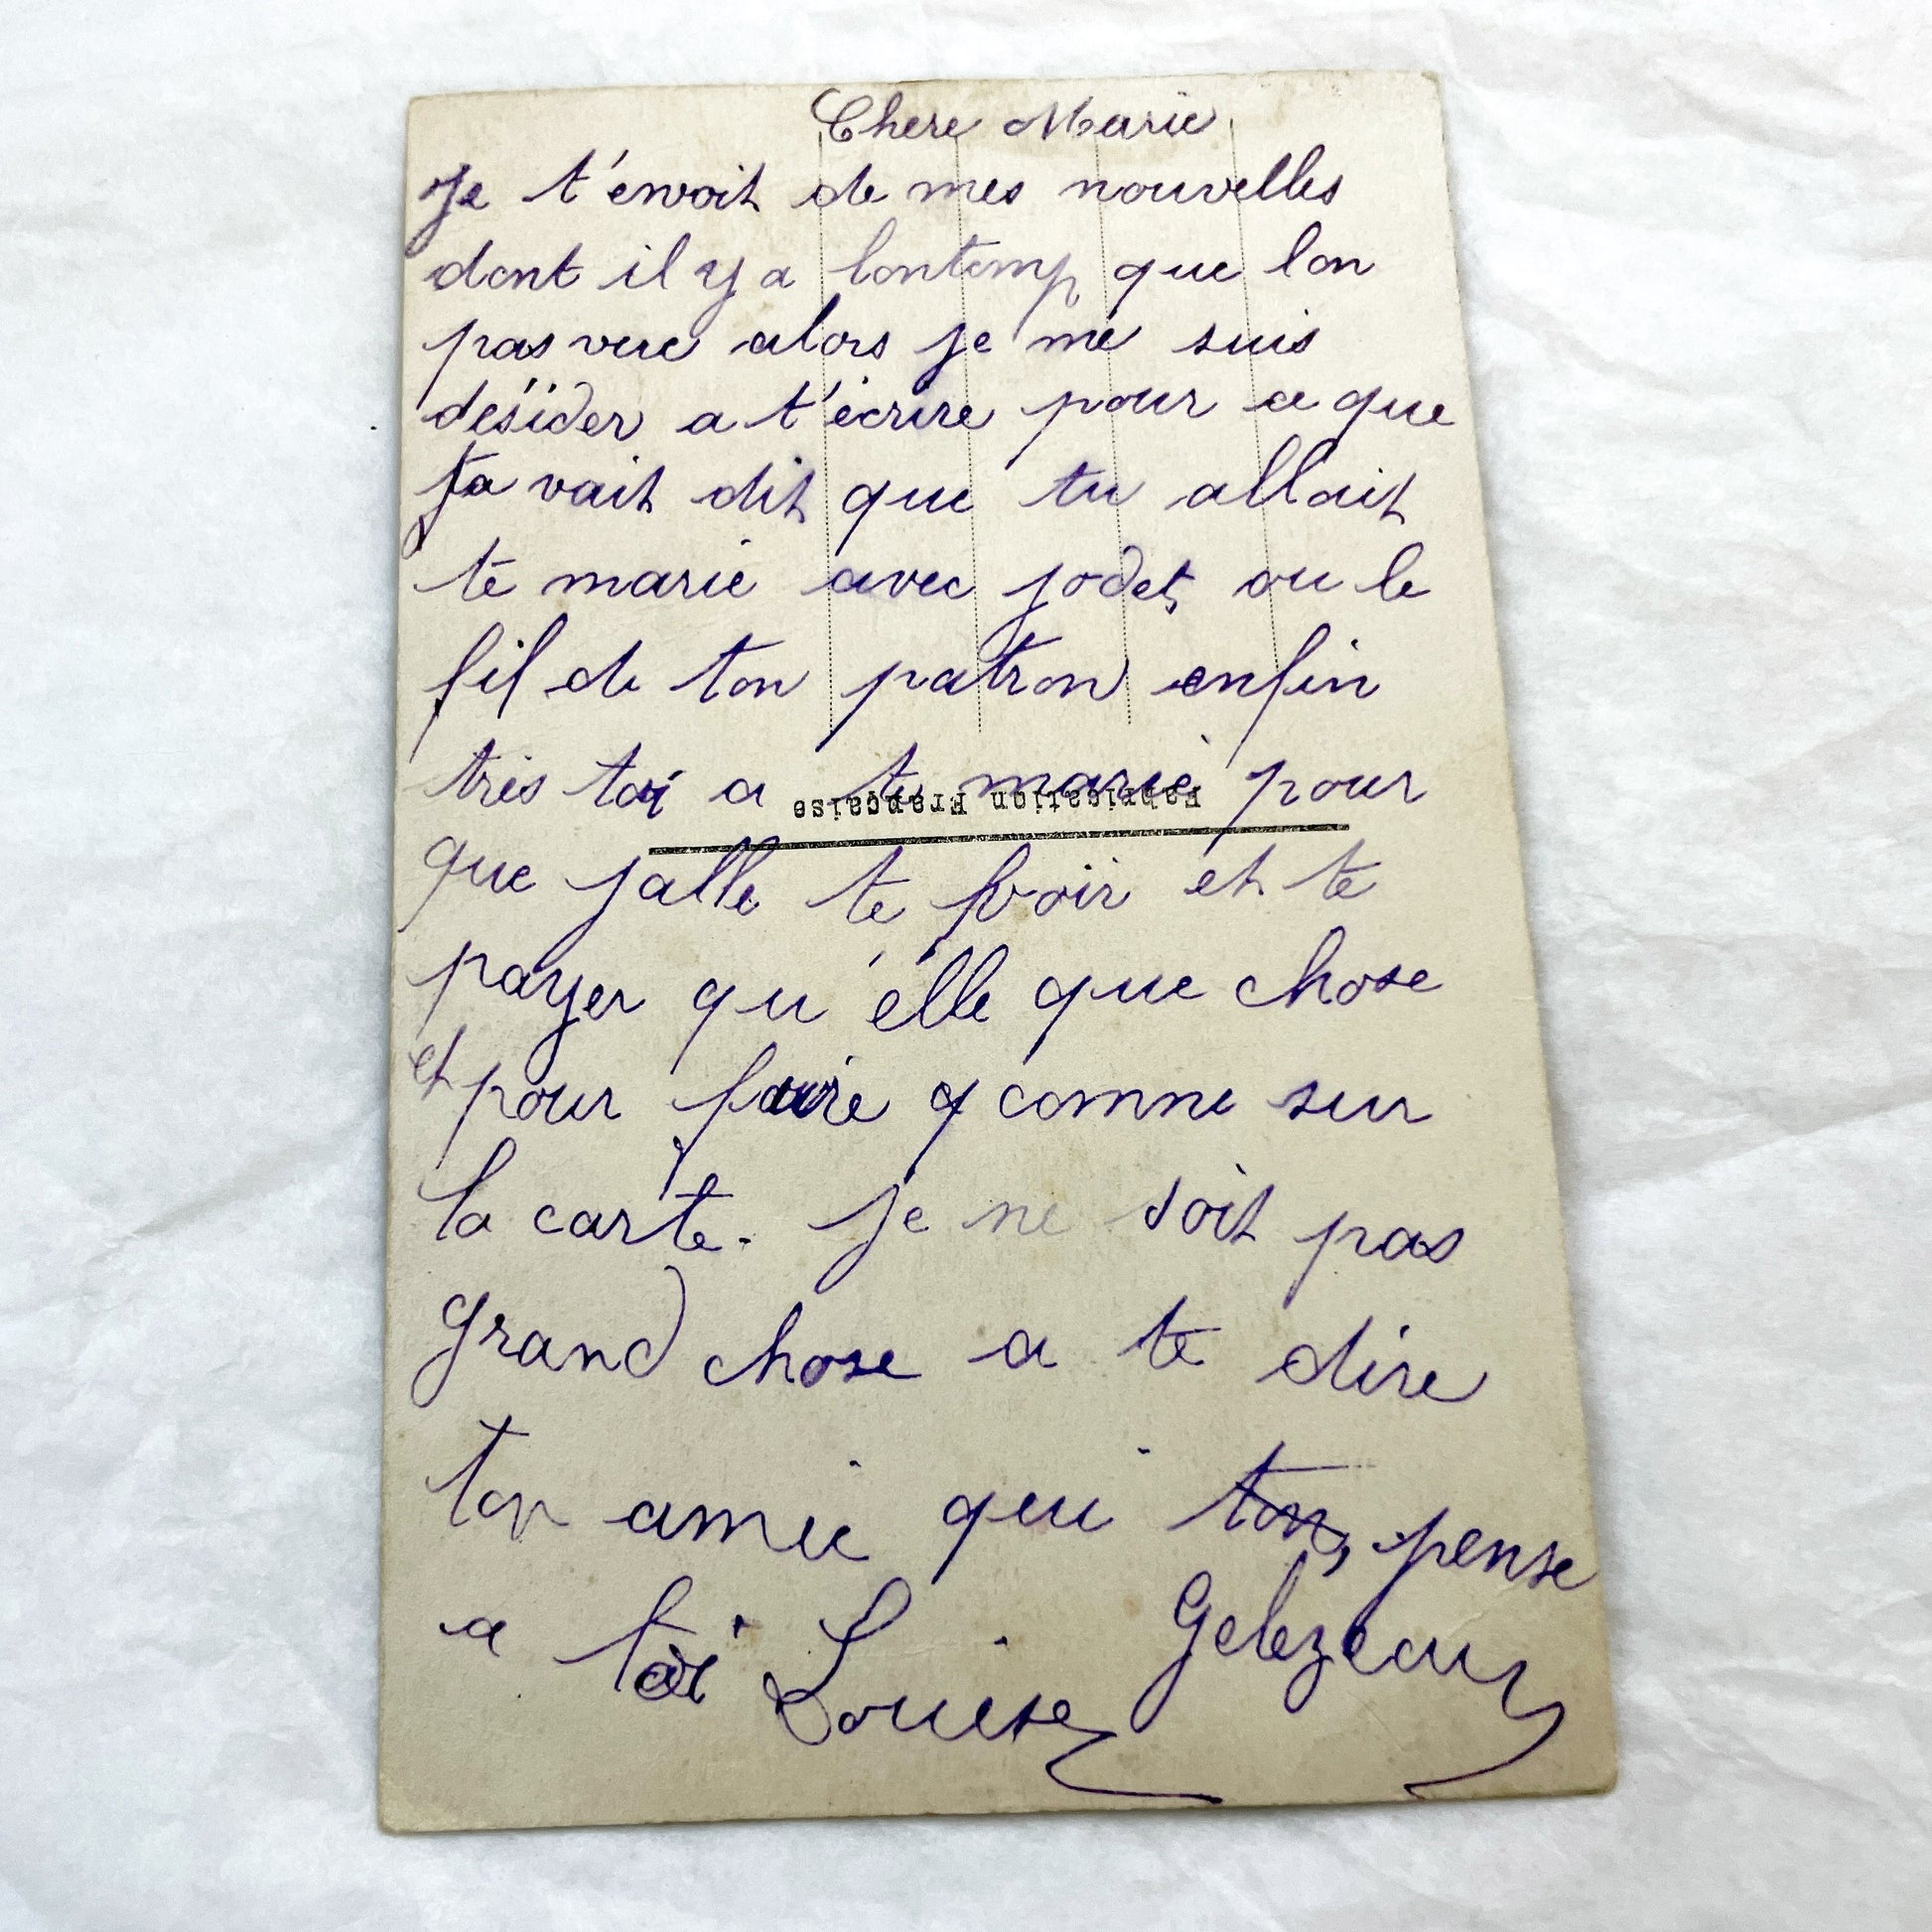 Chere Marie
Je t'envoit de mes nouvelles
dont il y a lontemp que lon
pas vue alors je me suis
désider a t'écrire pour ce que
ta vait dit que tu allait
te marie avec jodet ou le
fil de ton patron enfin
très toi a te marié pour
Fabrication Française
que jalle te voir et te
payer qu'élle que chose
et pour faire comme sur
la carte. je ne soit pas
grand chose a te dire
ton amie qui ton pense
a toi Louise Gelezeau